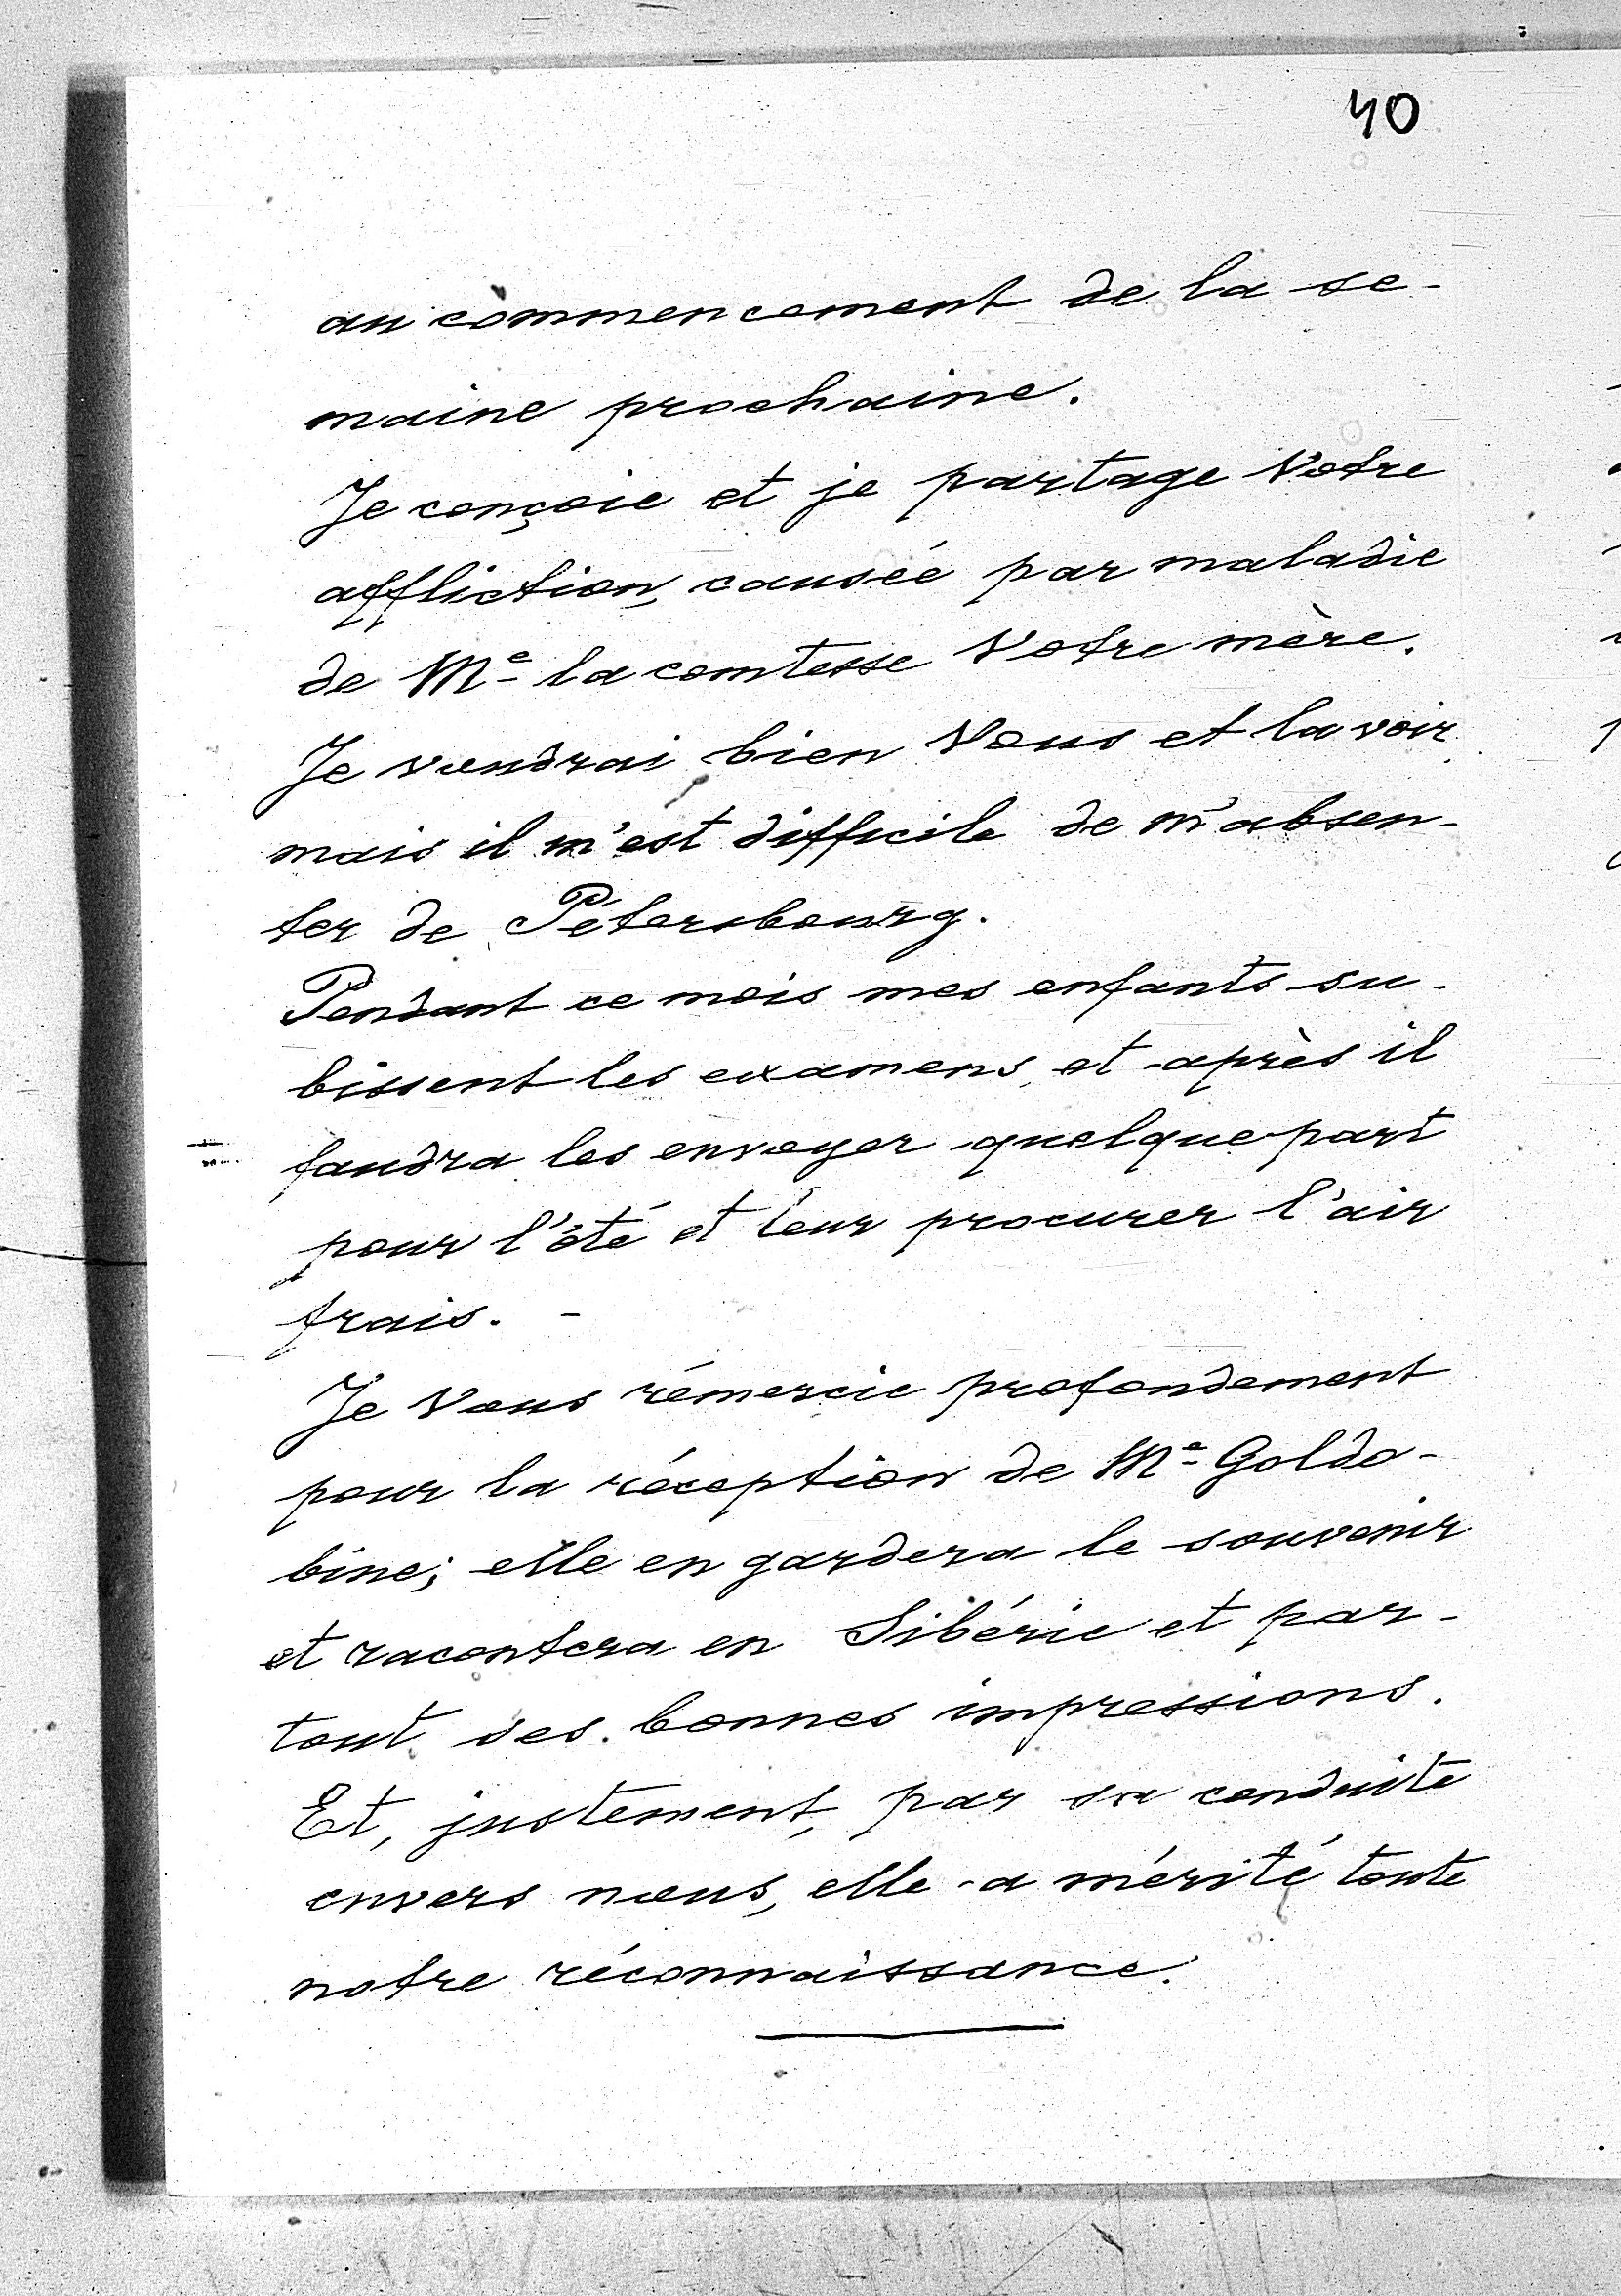 40
au commencement de la se-
maine prochaine.
Je conçoie et je partage Votre
affliction, causée par maladie
de Me la comtesse Votre mère.
Je voudrai bien Vous et la voir
mais il m'est difficile de m'absen-
ter de Pétersbourg.
Pendant ce mois mes enfants su-
bissent les examens, et après il
faudra les envoyer quelque part
pour l'été et leur procurer l'air
frais. -
Je Vous rémercie profondement
pour la réception de Me Goldo-
bine; elle en gardera le souvenir
et racontera en Sibérie et par-
tout ses bonnes impressions.
Et, justement, par sa conduite
envers nous, elle a mérité toute
notre réconnaissance.